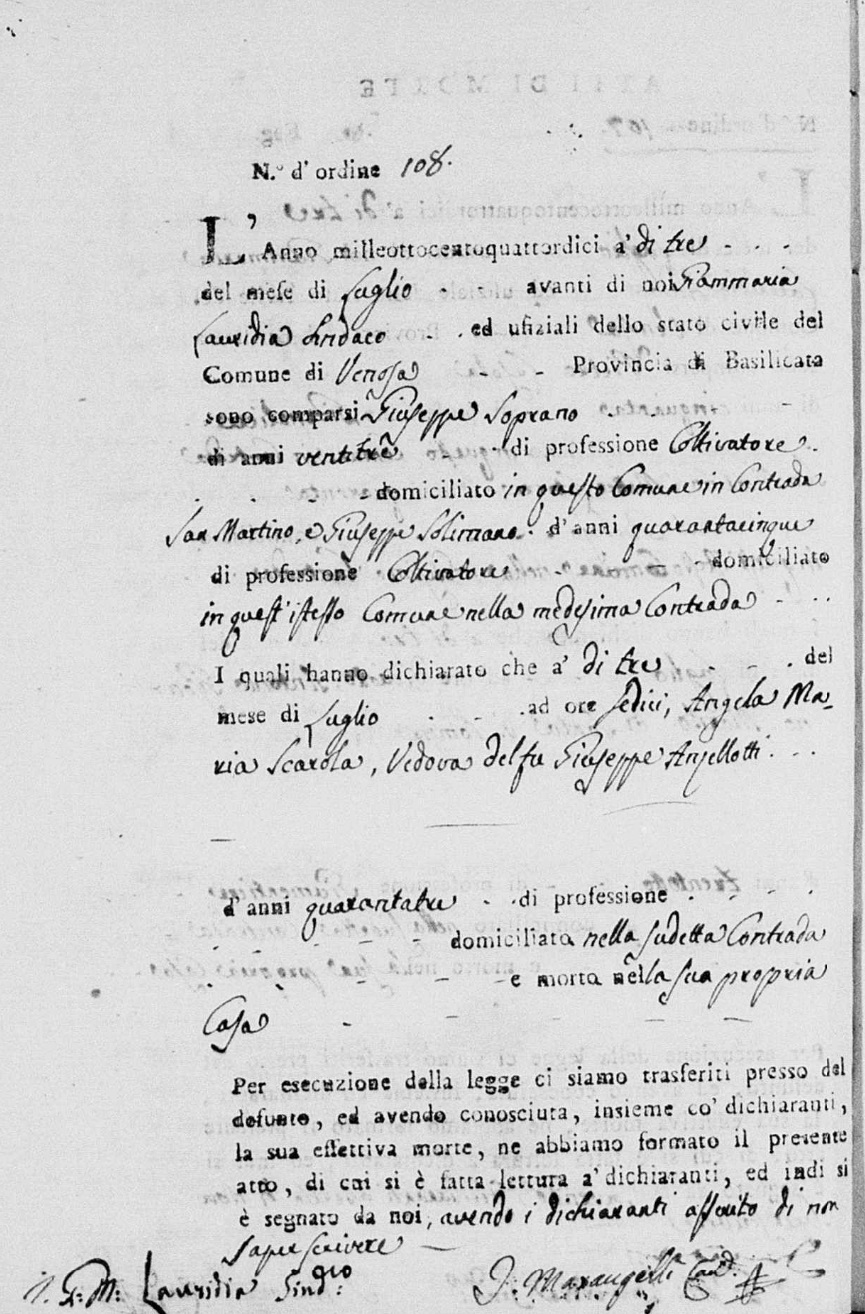 N.° d'ordine 108.
L'Anno milleottocentoquattordici a' di tre
del mese di Luglio avanti di noi Giammaria
Lauridia Sindaco ed ufiziali dello stato civile del
Comune di Venosa Provincia di Basilicata
sono comparsi Giuseppe Soprano
di anni ventitre di professione Coltivatore
domiciliato in questo Comune in Contrada
San Martino, e Giuseppe Solimano d'anni quarantacinque
di professione Coltivatore domiciliato
in quest'istesso Comune nella medesima Contrada
I quali hanno dichiarato che a' di tre del
mese di Luglio ad ore sedici, Angela Ma-
ria Scarola, Vedova del fu Giuseppe
d'anni quarantatre di professione
domiciliata nella sudetta Contrada
e morta nella sua propria
Casa
Per esecuzione della legge ci siamo trasferiti presso del
defunto, ed avendo conosciuta, insieme co' dichiaranti,
la sua effettiva morte, ne abbiamo formato il presente
atto, di cui si è fatta lettura a' dichiaranti, ed indi si
è segnato da noi, avendo i dichiaranti asserito di non
saper scrivere
G: M: Lauridia Sind:co J: Marangelli